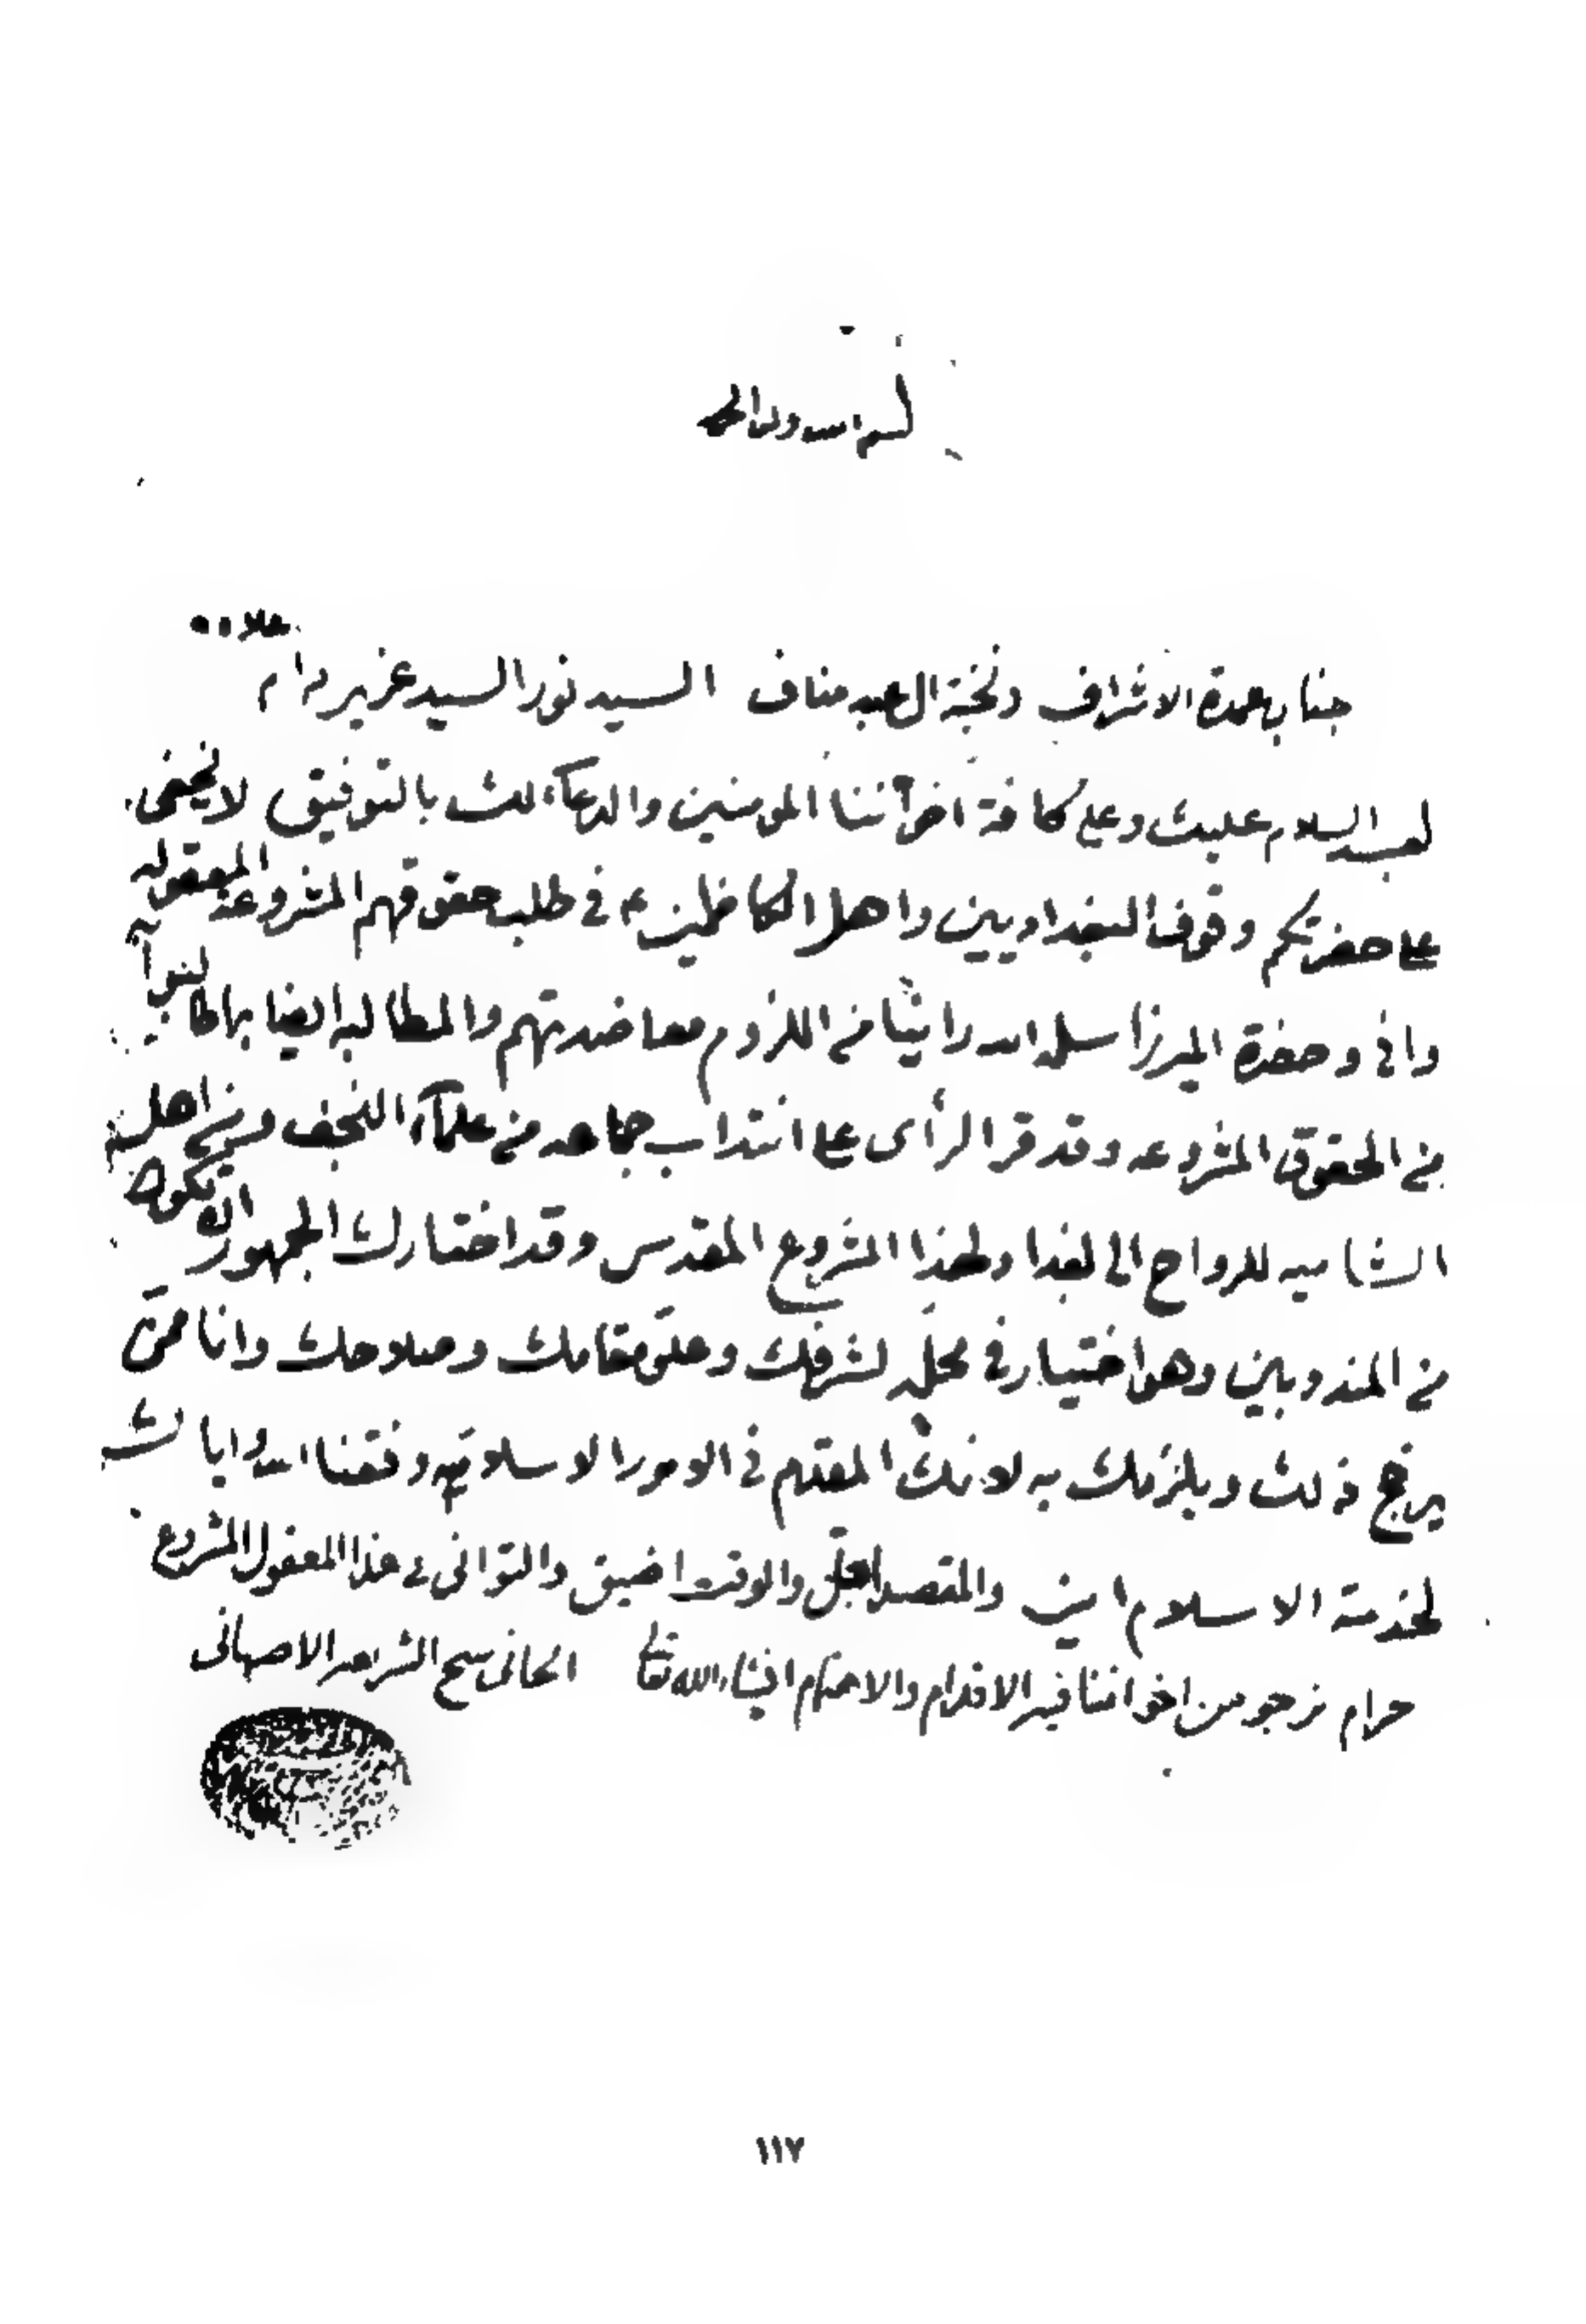 بسم الله وله الحمد
علاه
جناب عمدة الاشراف ونخبة ال عبد مناف السيد نور السيد عزيز دام
بعد السلام عليك وعلى كافة اخواننا المؤمنين والدعاء لك بالتوفيق لا يخفى
على حضرتكم وقوف البغداديين واهل الكاظمين ع في طلب حقوقهم المشروعة المعقوله
واني وحضرة الميرزا سلمه الله راينا من اللزوم معاضدتهم والمطالبه ايضا بها
من الحقوق المشروعه وقد قر الرأى على انتداب جماعه من علماء النجف ومن اهل
الشاميه للرواح الى بغداد ولهذا المشروع المقدس وقد اختارك الجمهور ان تكون
من المندوبين وهو اختيار في محله لشرفك وعلو مقامك وصلاحك وانا ممن
يرجح ذلك ويلزمك به لانك المقدم في الامور الاسلامية وفقنا الله واياك
لخدمة الاسلام امين والمقصد اجل والوقت اضيق والتواني في هذا المعقول المشروع
حرام نرجو من اخواننا فيه الاقدام والاهتمام انشاء الله تعالى الجاني شيخ الشريعه الاصبهاني
١١٧